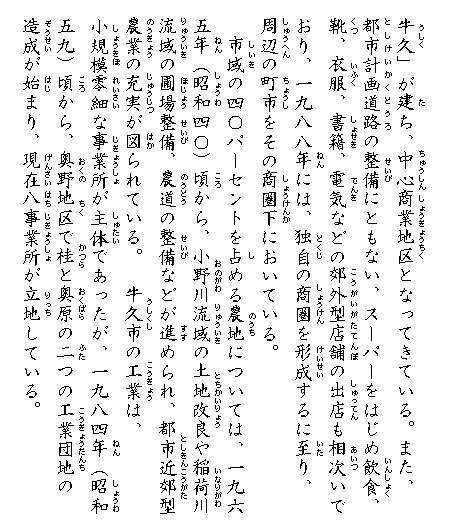 牛久」が建ち、中心商業地区となってきている。また、
都市計画道路の整備にともない、スーパーをはじめ飲食、
靴、衣服、書籍、電気などの郊外型店舗の出店も相次いで
おり、一九八八年には、独自の商圏を形成するに至り、
周辺の町市をその商圏下においている。
市域の四〇パーセントを占める農地については、一九六
五年（昭和四〇）頃から、小野川流域の土地改良や稲荷川
流域の圃場整備、農道の整備などが進められ、都市近郊型
農業の充実が図られている。　牛久市の工業は、
小規模零細な事業所が主体であったが、一九八四年（昭和
五九）頃から、奥野地区で桂と奥原の二つの工業団地の
造成が始まり、現在八事業所が立地している。